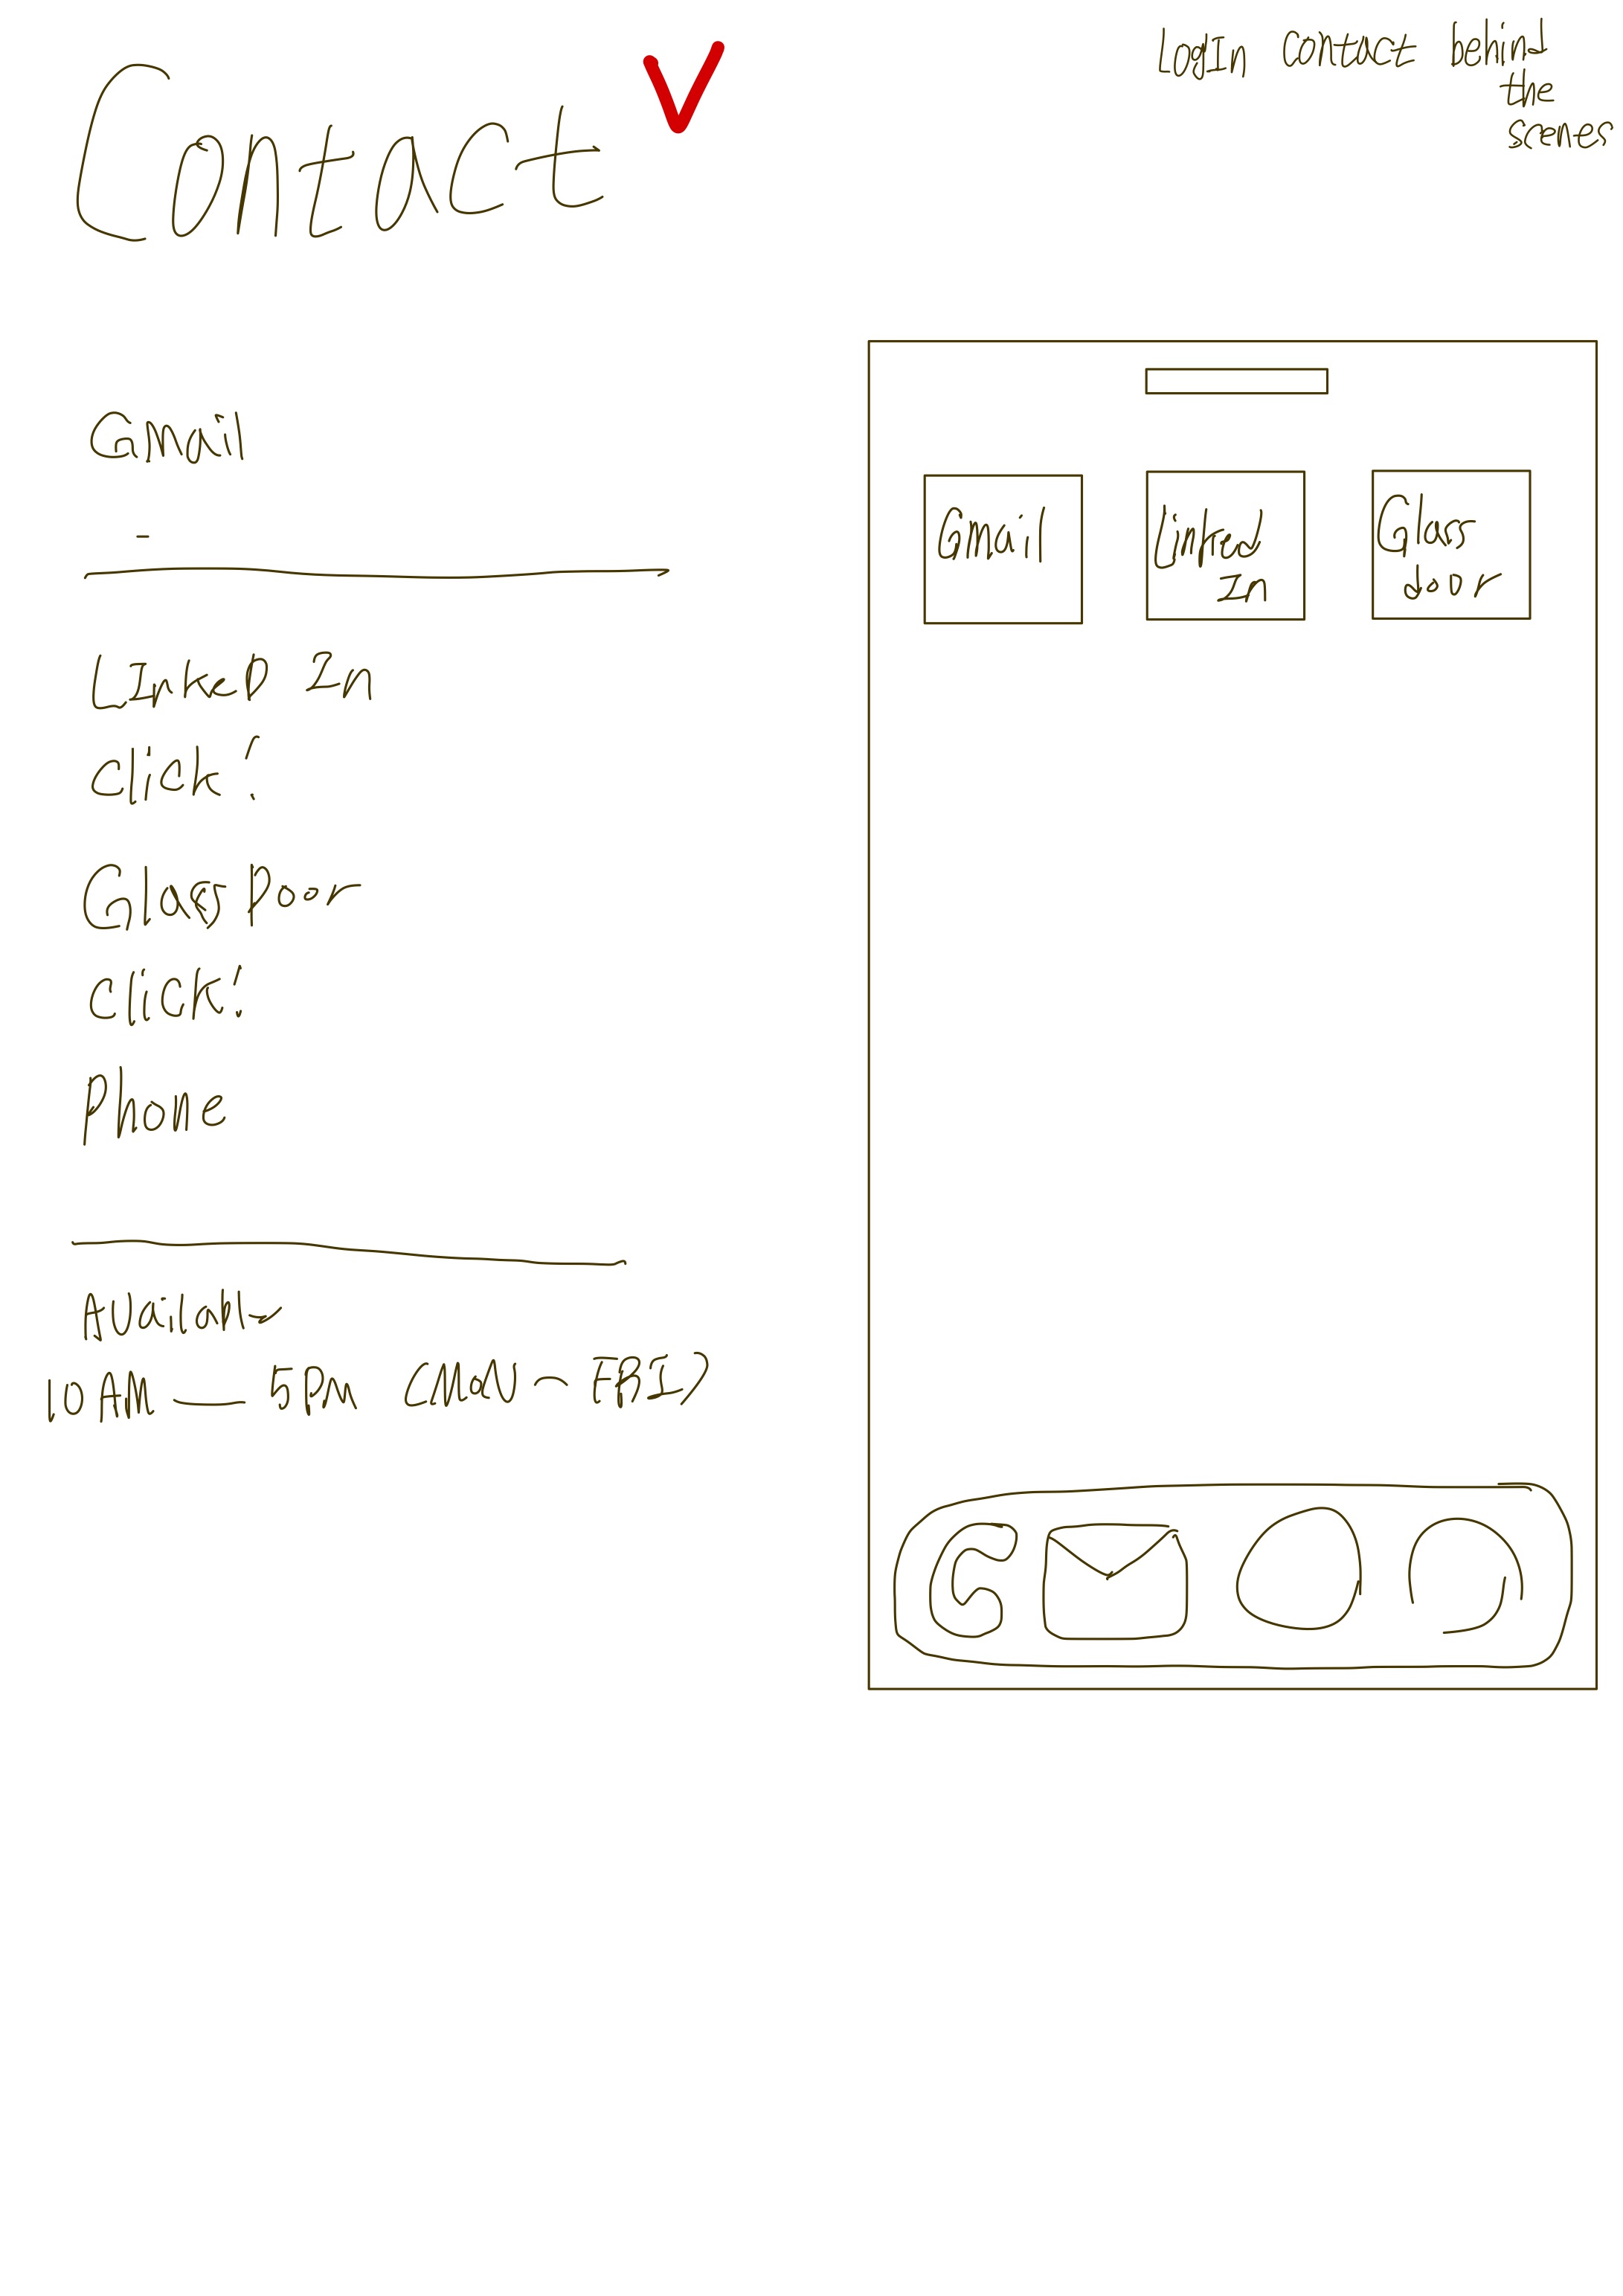 Contact
LogIn contact behind
the
scenes
Gmail
-
LInkeD In
Click!
GlassDoor
Click!
Phone
Available
10 AM — 5PM (MON - FRI)
Gmail
Linked
In
Glass
door